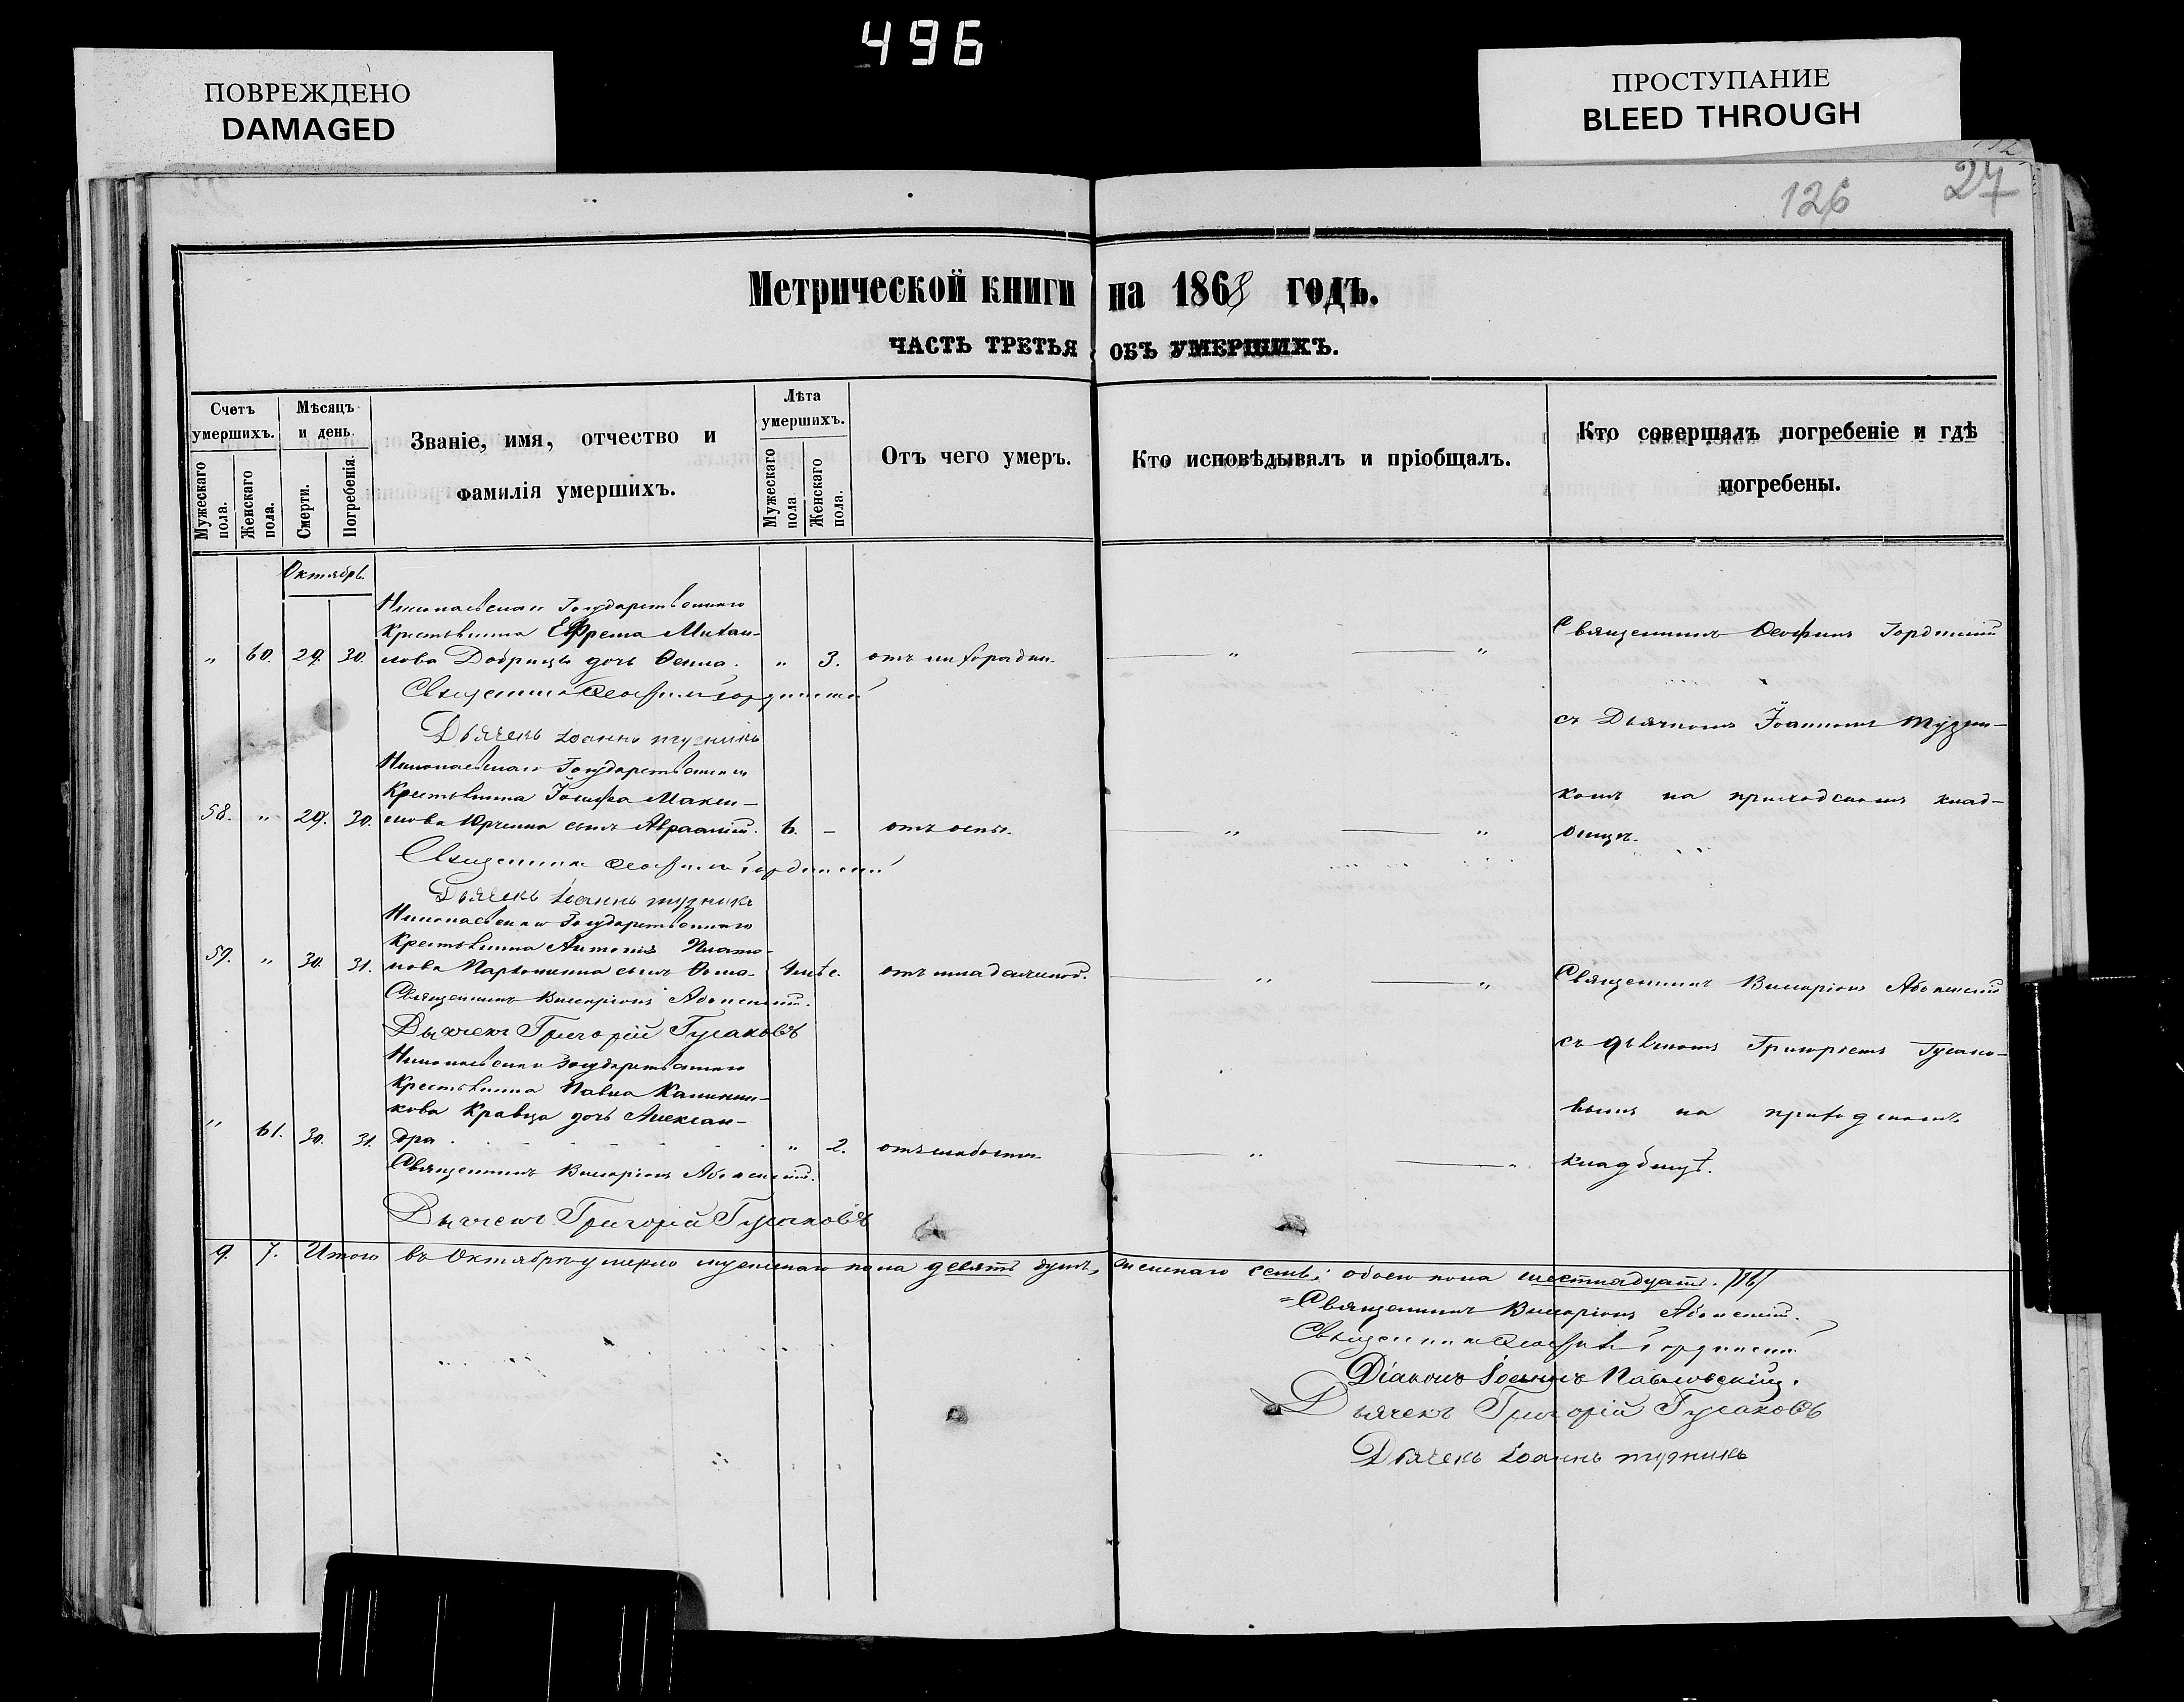 496
ПОВРЕЖДЕНО
DAMAGED
ПРОСТУПАНИЕ
BLEED THROUGH
126
27
Метрической книги на 1868 годъ.
ЧАСТЬ ТРЕТЬЯ ОБЪ УМЕРШИХЪ.
Счетъ умершихъ.
Мужескаго пола.
Женскаго пола.
Мѣсяцъ и день.
Смерти.
Погребенія.
Званіе, имя, отчество и фамилія умершихъ.
Лѣта умершихъ.
Мужескаго пола
Женскаго пола.
Отъ чего умеръ.
Кто исповѣдывалъ и пріобщалъ.
Кто совершалъ погребеніе и гдѣ погребены.
Октябрь.
Николаевскаго Государственнаго
Крестьянина Ефрема Михаи-
" 60. 29. 30. лова Добрицы дочь Ѳекла. " 3. отъ лихорадки. " "
Священникъ Ѳеофилъ
Дьячекъ Іоаннъ Тузникъ
Николаевскаго Государственнаго
Крестьянина Іосифа Макси-
58. " 29. 30. мова Юрченка сынъ Авраамій. 6. - отъ оспы. " "
Священникъ Ѳеофилъ
Дьячекъ Іоаннъ Тузникъ
Николаевскаго Государственнаго
Крестьянина Антонія Плато-
59. " 30. 31. нова Пархоменка сынъ Ѳома. 4 мѣс. отъ младенческой. " "
Священникъ Виссаріонъ
Дьячекъ Григорій Гусаковъ
Николаевскаго Государственнаго
Крестьянина Павла Калинни-
кова Кравца дочь Алексан-
" 61. 30. 31. дра. " 2. отъ слабости. " "
Священникъ Виссаріонъ
Дьячекъ Григорій Гусаковъ
Священникъ Ѳеофилъ
съ Дьячкомъ Іоанномъ Тузни-
комъ на приходскомъ клад-
бищѣ.
Священникъ Виссаріонъ
съ дьячкомъ Григоріемъ Гусако-
вымъ на приходскомъ
кладбищѣ.
9. 7. Итого въ Октябрѣ умерло мужескаго пола девять душъ, женскаго семь; обоего пола шестнадцать. /16/
Священникъ Виссаріонъ
Священникъ Ѳеофилъ
Діаконъ Іоаннъ Павловскій.
Дьячекъ Григорій Гусаковъ
Дьячекъ Іоаннъ Тузникъ